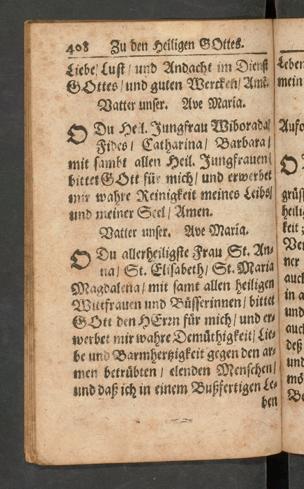 408 Zu den Heiligen GOttes.
Liebe/ Lust/ und Andacht im Dienst
GOttes/ und guten Wercken/ Amẽ.
Vatter unser. Ave Maria.
O Du Heil. Jungfrau Wiborada/
Fides/ Catharina/ Barbara/
mit sambt allen Heil. Jungfrauen/
bittet GOtt für mich/ und erwerbet
mir wahre Reinigkeit meines Leibs/
und meiner Seel/ Amen.
Vatter unser. Ave Maria.
O Du allerheiligste Frau St. An-
na/ St. Elisabeth/ St. Maria
Magdalena/ mit samt allen heiligen
Wittfrauen und Büsserinnen/ bittet
GOtt den HErrn für mich/ und er-
werbet mir wahre Demüthigkeit/ Lie-
be und Barmhertzigkeit gegen den ar-
men betrübten/ elenden Menschen/
und daß ich in einem Bußfertigen Le-
ben